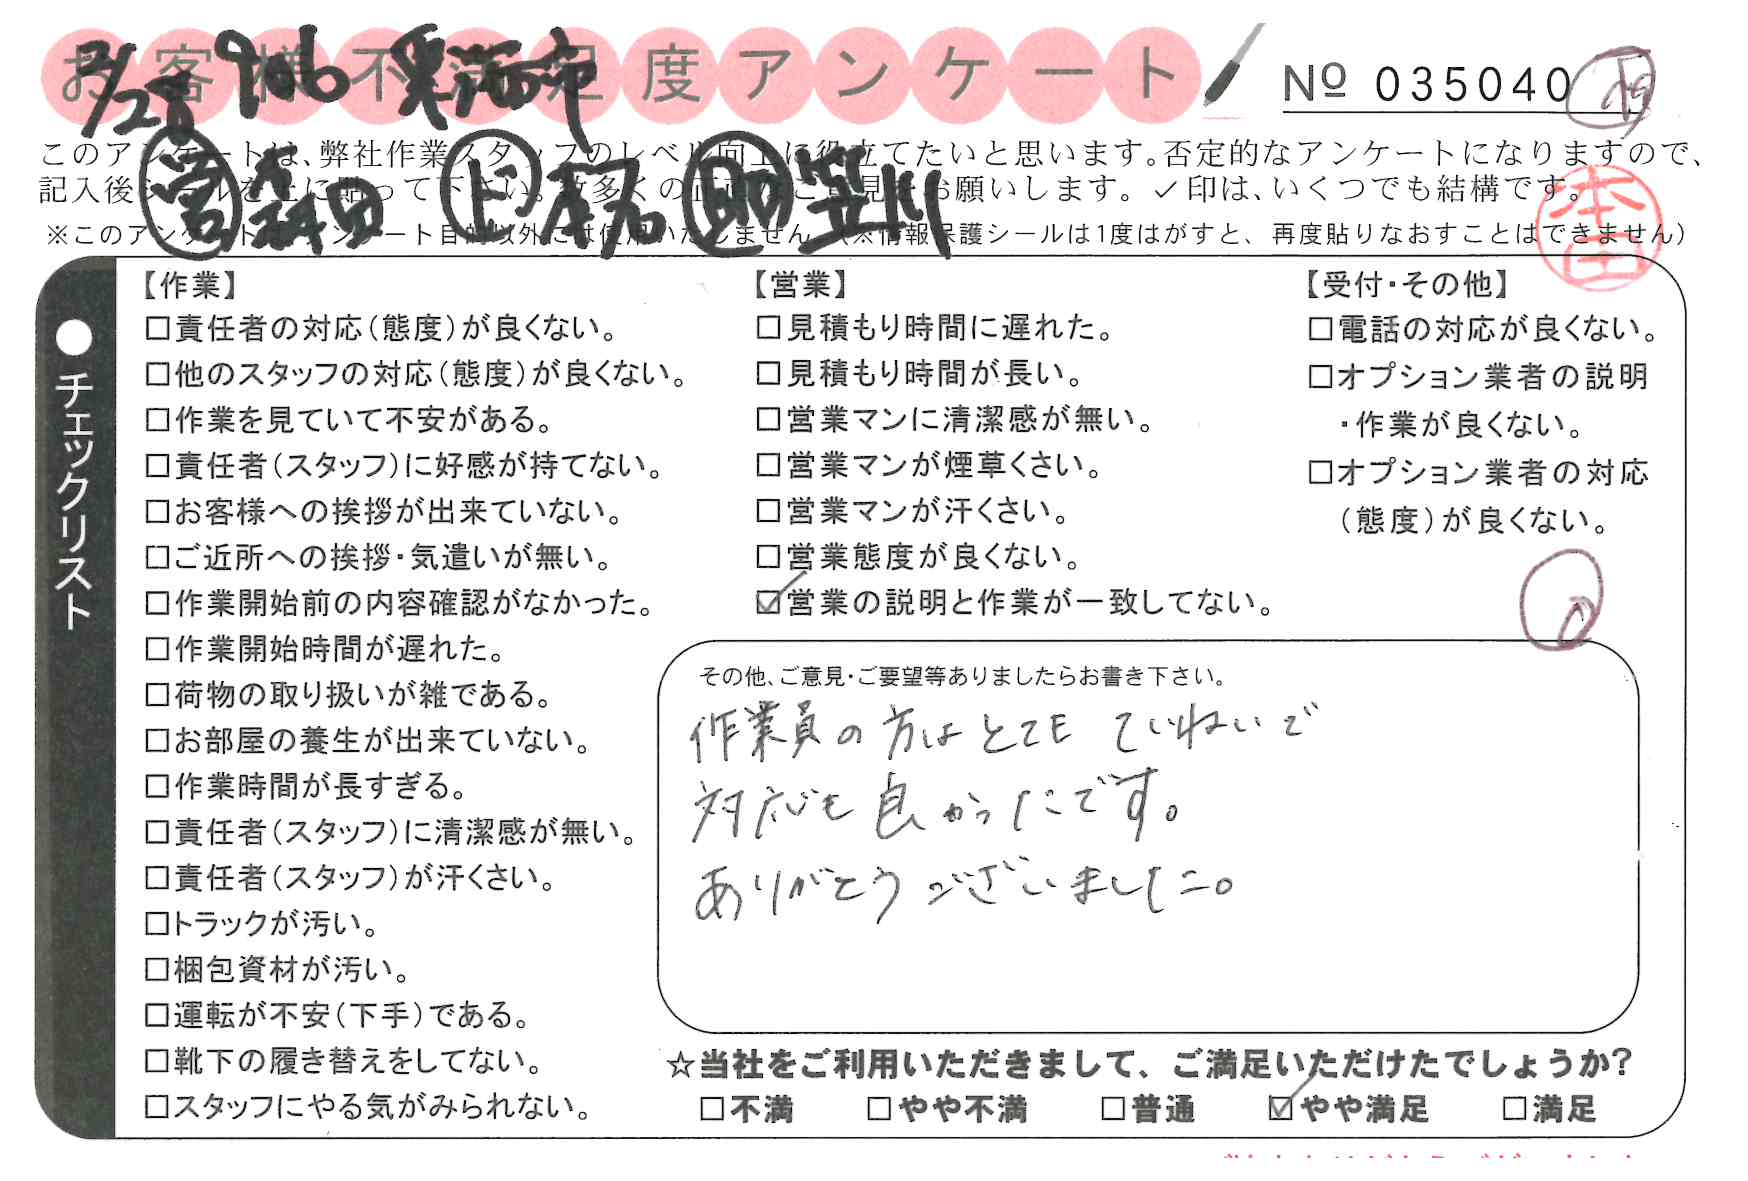 お客様不満足度アンケート
No 035040
このアンケートは、弊社作業スタッフのレベル向上に役立てたいと思います。否定的なアンケートになりますので、
記入後シールを上に貼って下さい。数多くの正直なご意見をお願いします。✓印は、いくつでも結構です。
※このアンケートはアンケート目的以外には使用いたしません。(※情報保護シールは1度はがすと、再度貼りなおすことはできません)
本田
●チェックリスト
【作業】
□責任者の対応(態度)が良くない。
□他のスタッフの対応(態度)が良くない。
□作業を見ていて不安がある。
□責任者(スタッフ)に好感が持てない。
□お客様への挨拶が出来ていない。
□ご近所への挨拶・気遣いが無い。
□作業開始前の内容確認がなかった。
□作業開始時間が遅れた。
□荷物の取り扱いが雑である。
□お部屋の養生が出来ていない。
□作業時間が長すぎる。
□責任者(スタッフ)に清潔感が無い。
□責任者(スタッフ)が汗くさい。
□トラックが汚い。
□梱包資材が汚い。
□運転が不安(下手)である。
□靴下の履き替えをしてない。
□スタッフにやる気がみられない。
【営業】
□見積もり時間に遅れた。
□見積もり時間が長い。
□営業マンに清潔感が無い。
□営業マンが煙草くさい。
□営業マンが汗くさい。
□営業態度が良くない。
☑営業の説明と作業が一致してない。
【受付・その他】
□電話の対応が良くない。
□オプション業者の説明
・作業が良くない。
□オプション業者の対応
(態度)が良くない。
その他、ご意見・ご要望等ありましたらお書き下さい。
作業員の方はとても ていねいで
対応も良かったです。
ありがとうございました。
☆当社をご利用いただきまして、ご満足いただけたでしょうか?
□不満 □やや不満 □普通 ☑やや満足 □満足